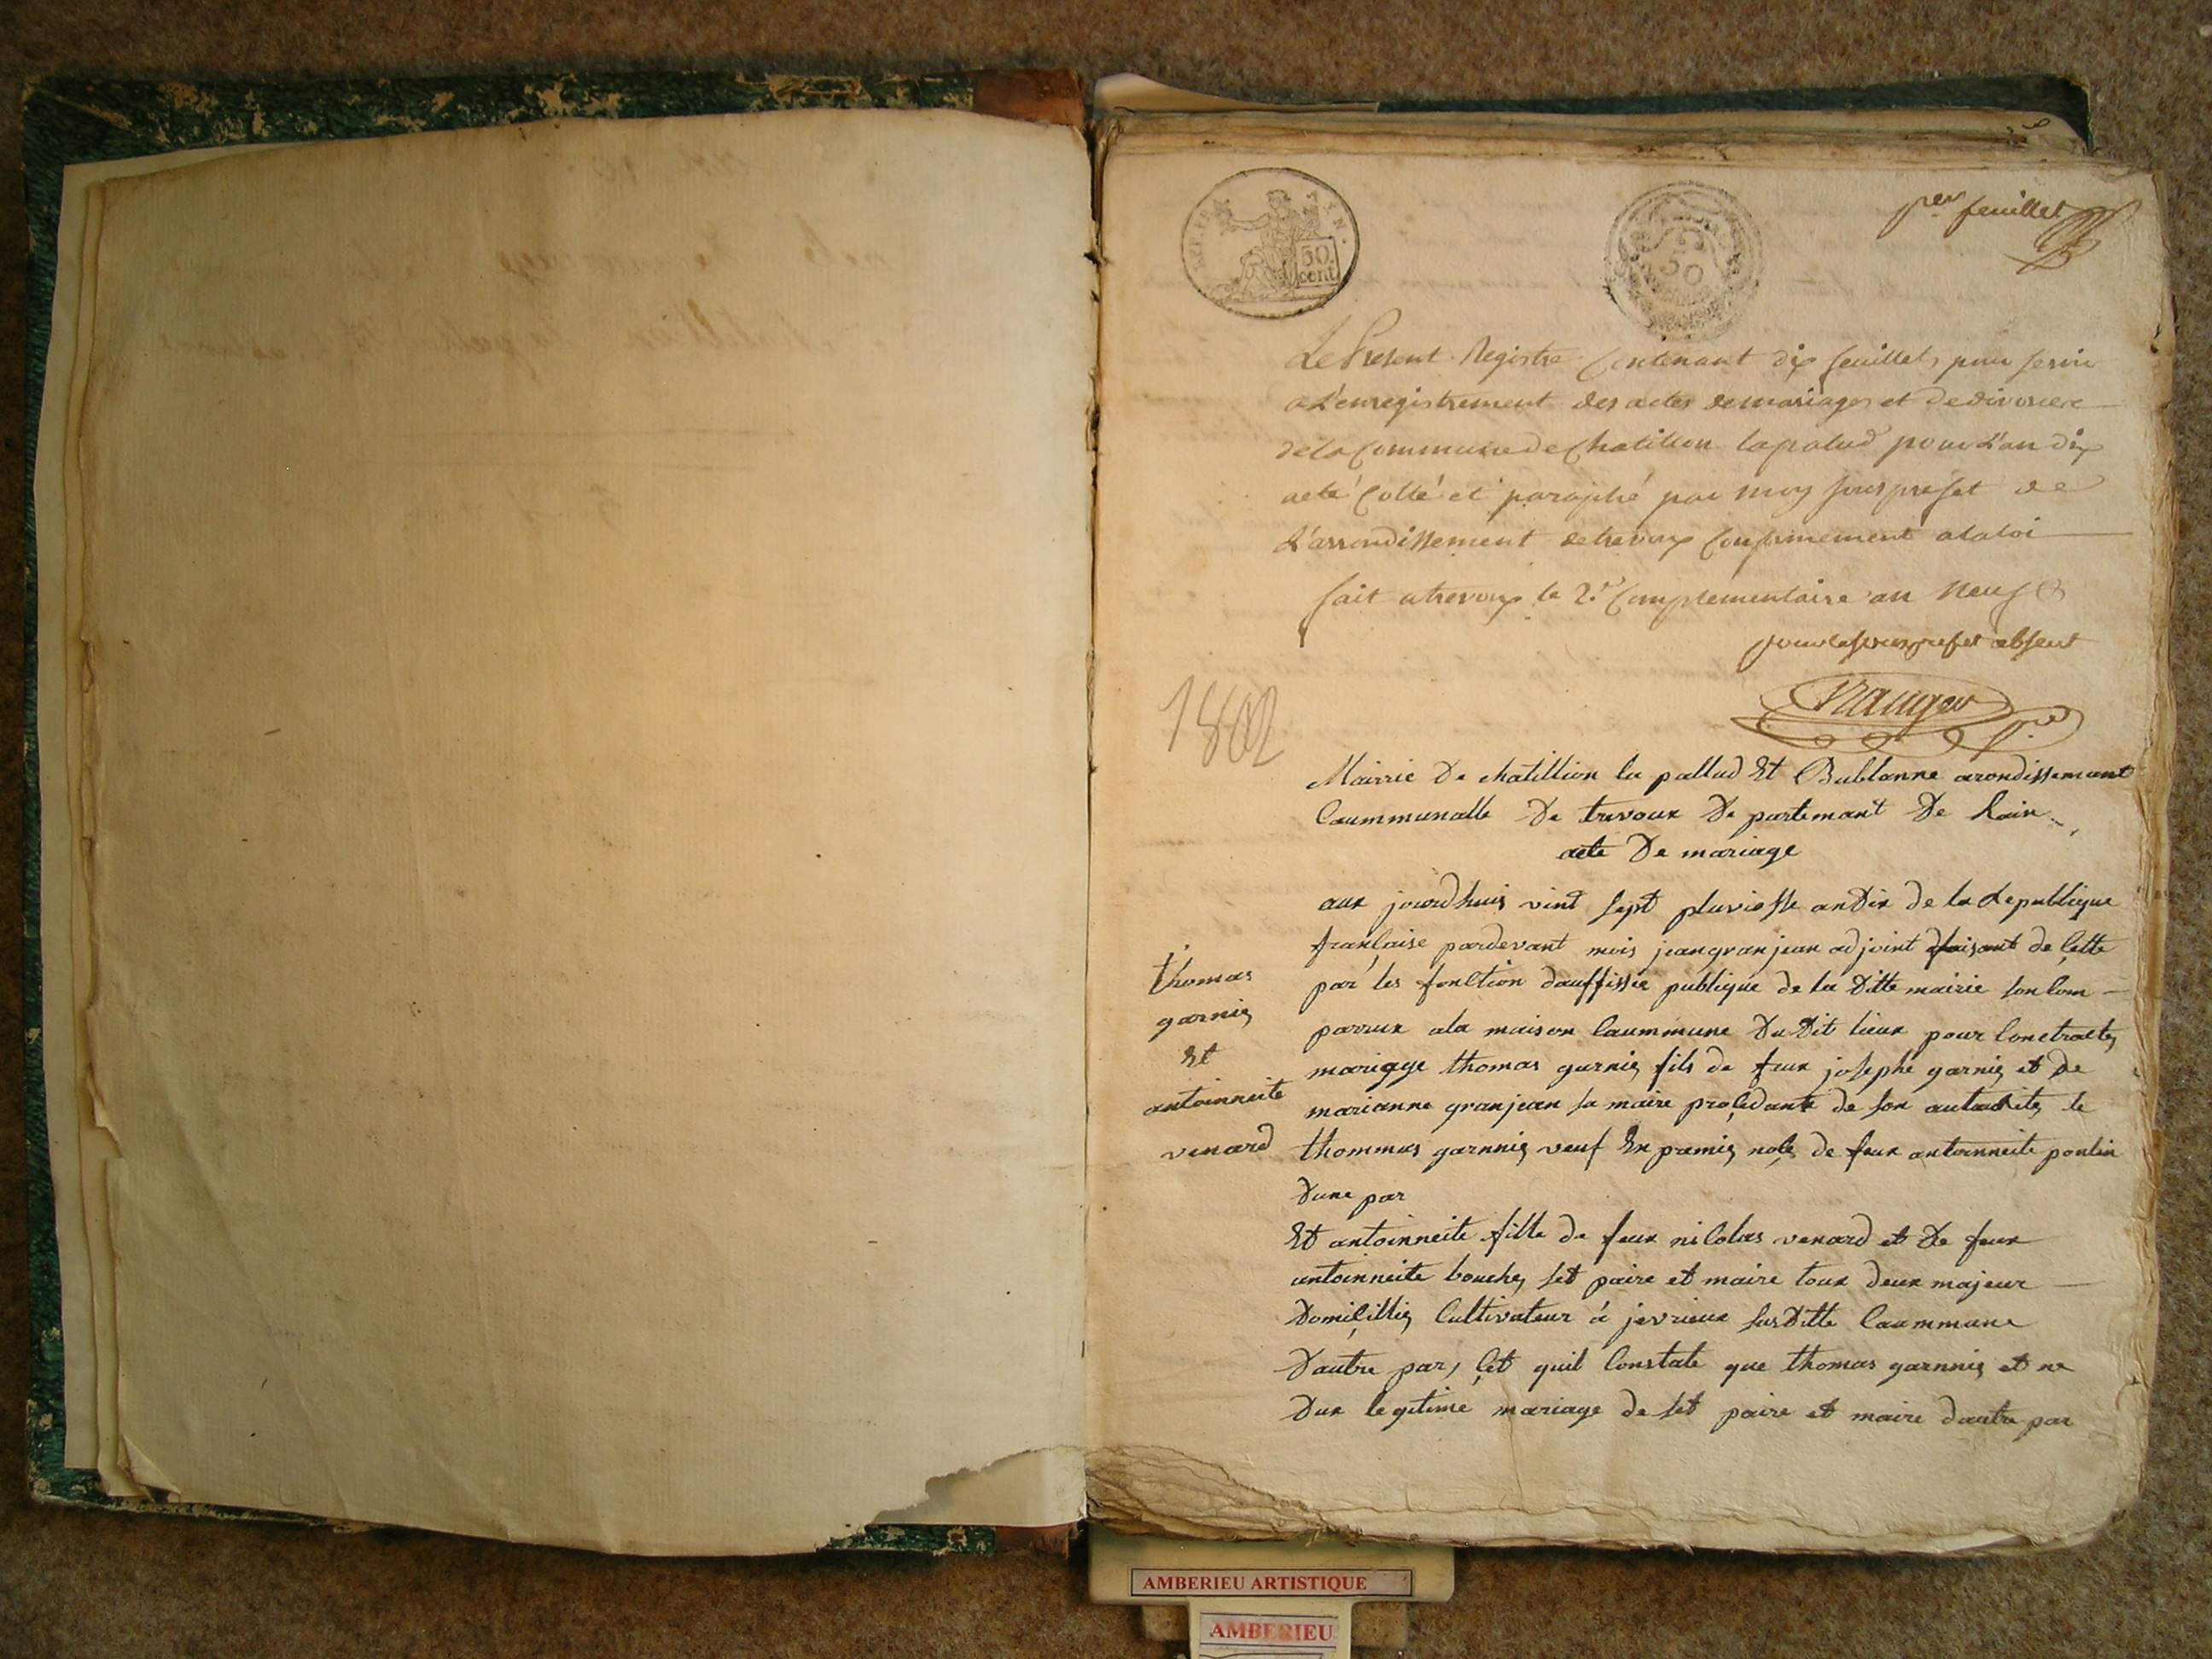 per feuillet
50. cent
50
Le Present Registre Contenant dix feuillets pour servir
a L'enregistrement des actes de mariages et de divorce
de la Commune de Chatillon lapalud pour L'an dix
a eté Cotté et paraphé par moy sous prefet de
L'arrondissement de trevoux Conformement a la loi
fait a trevoux le 2e Complementaire an Neuf
pour le sous prefet absent
1802
Mairrie De chatillion la pallud Et Bublanne arondissemant
Caummunalle De trevoux De partemant De Lain
acte De mariage
aux jourdhuis vint sept pluviosse an Dix de la Republique
française pardevant mois jean granjean adjoint faisant de cette
par les fonction dauffissie publique de la Ditte mairie son Com
parrux a la maison Caummune Du Dit lieux pour Conctracte
mariage thomas garnie fils de feux josephe garnie et De
marianne granjean sa maire procedant de son autaurite le
thommas garnnie veuf En premie noce de feux antoinneite poulin
Dune par
Et antoinneite fille de feux nicolas venard et De feux
antoinneite bouche set paire et maire toux deux majeur
Domicillie Cultivateur à jevrieux susDitte Caummune
Dautre par, cet quil Constate que thomas garnnie et ne
Dux legitime mariage de set paire et maire dautre par
thomas
garnie
Et
antoinneite
venard
AMBERIEU ARTISTIQUE
AMBERIEU